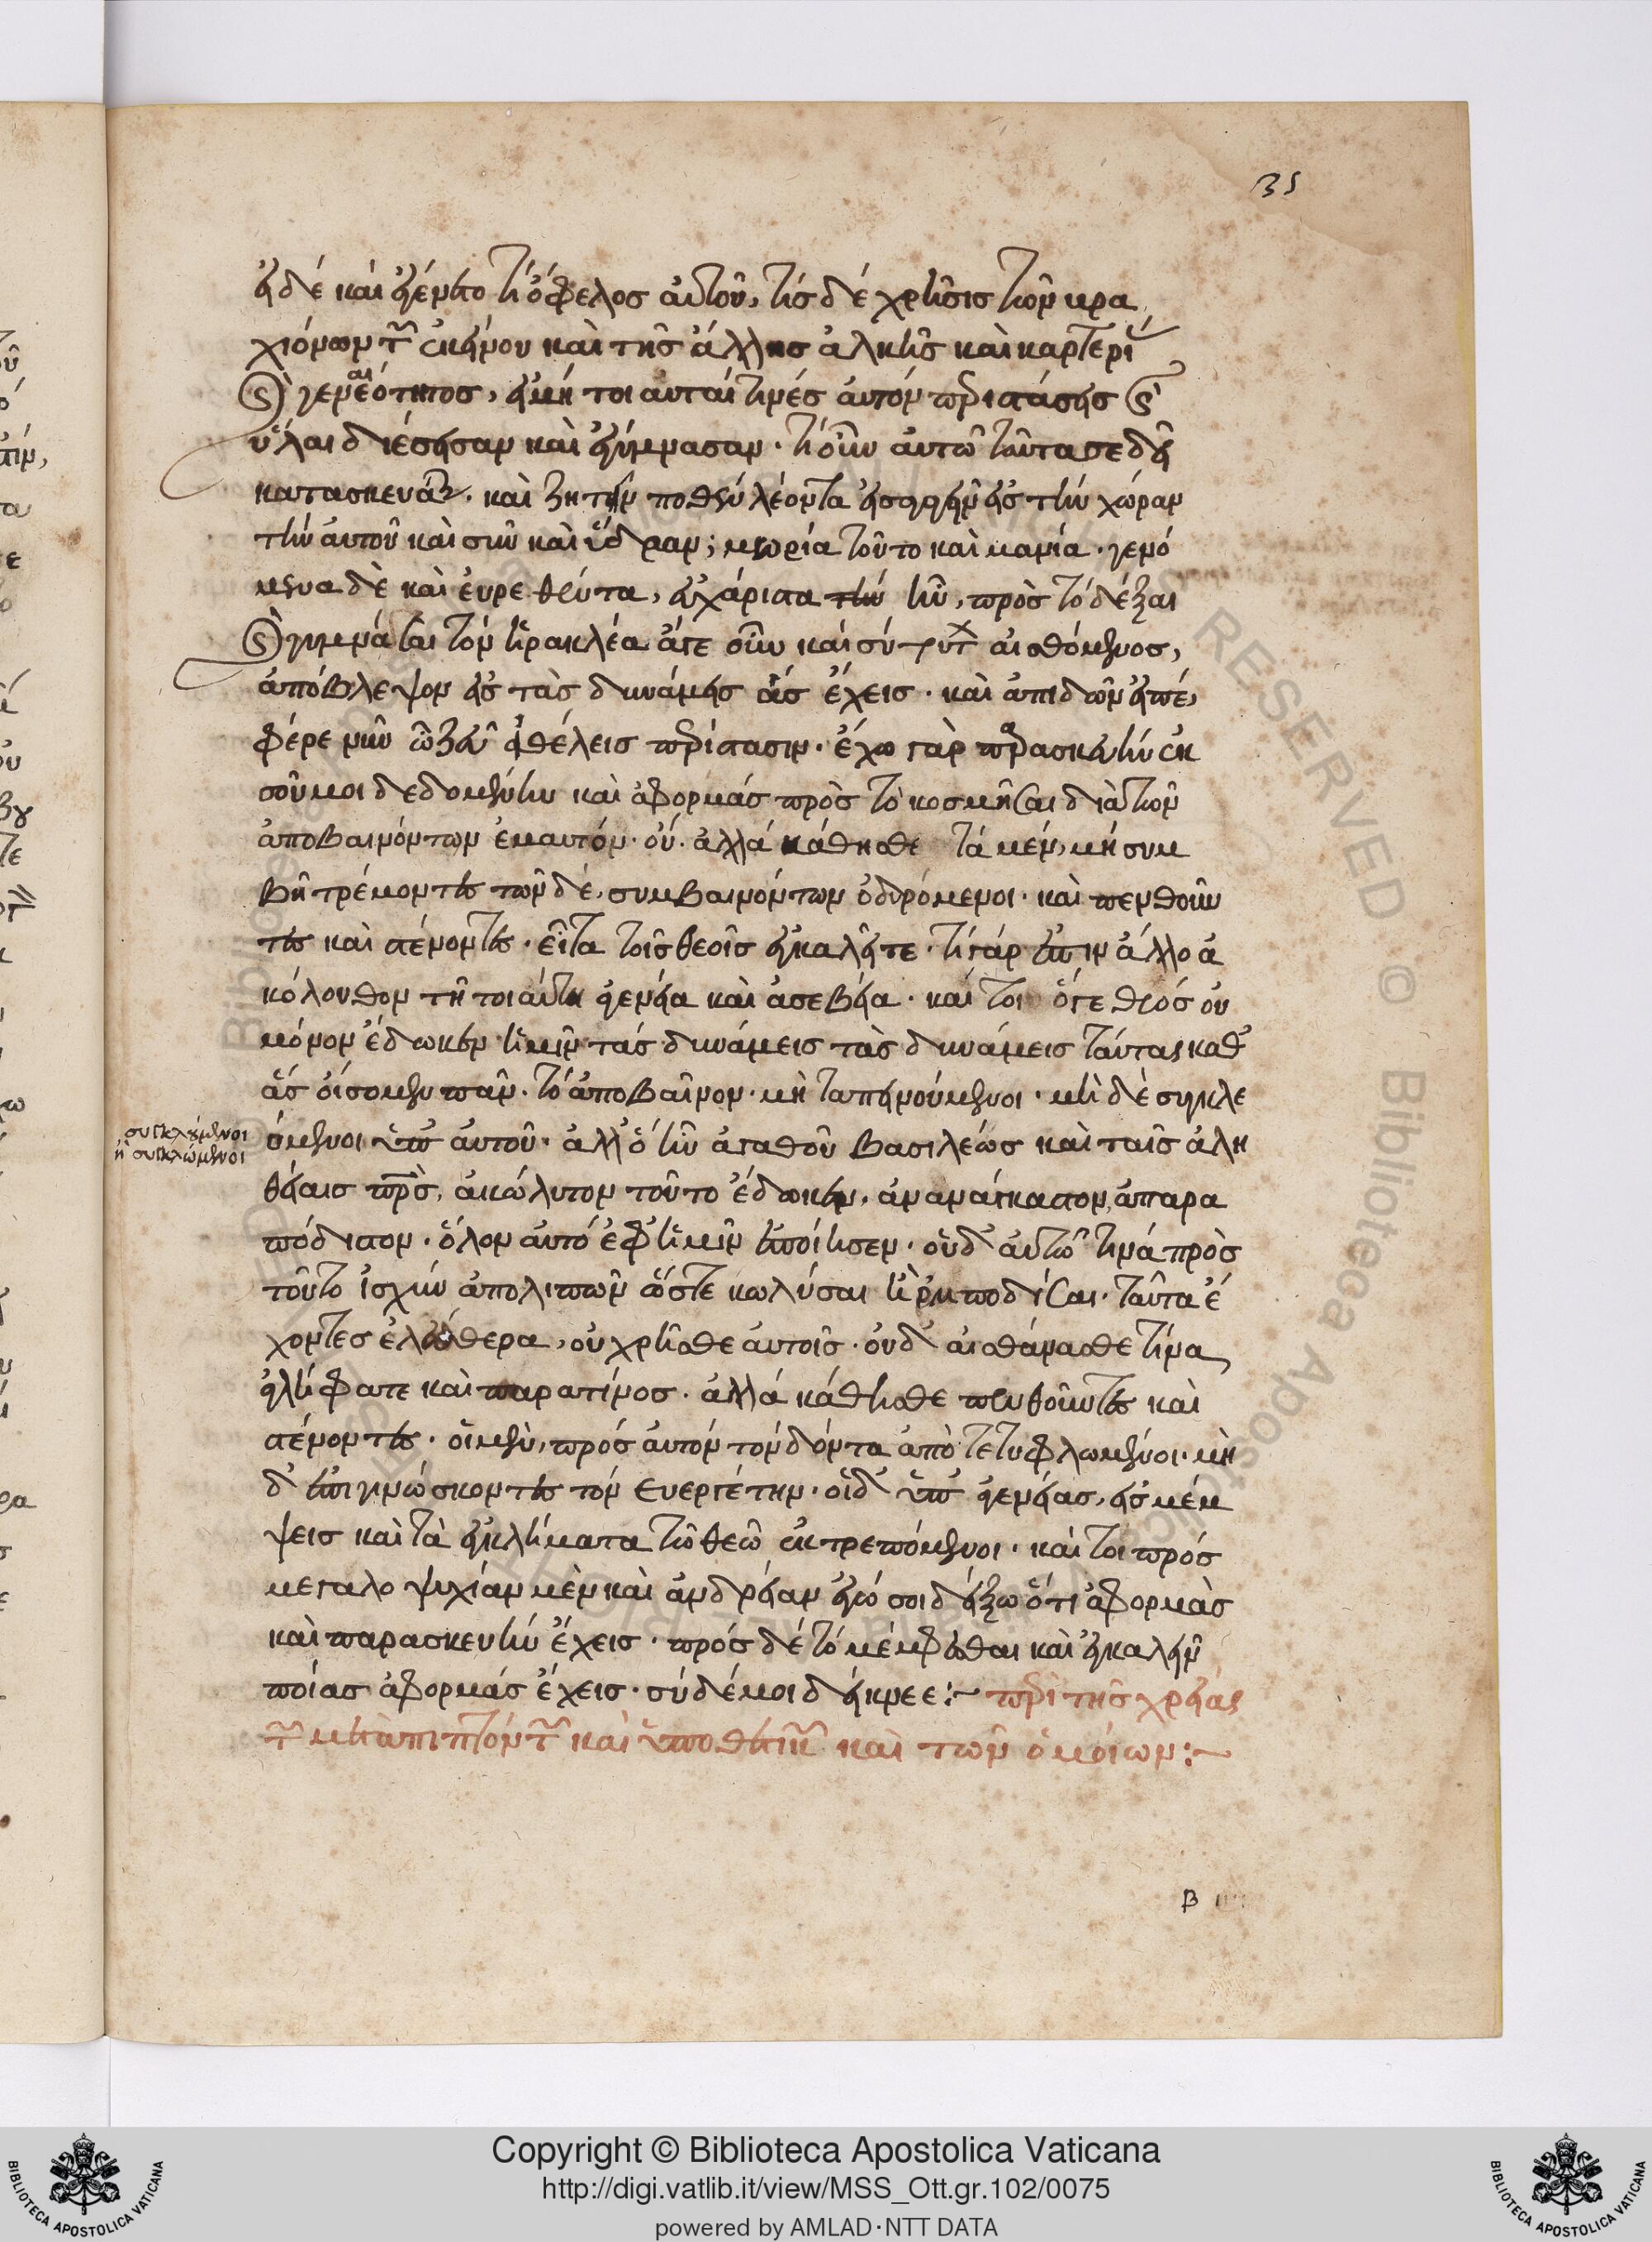 35
εἰ δὲ καὶ ἐγένετο τί ὄφελος αὐτοῦ, τίς δὲ χρῆσις τῶν βρα
χιόνων τῶν ἐκείνου καὶ τῆς ἄλλης ἀλκῆς καὶ καρτερί
καὶ γενναιότητος, εἰ μὴ τοιαῦταί τινές αὐτὸν περιστάσεις καὶ
ὗλαι διέσεισαν καὶ ἐγύμνασαν · τί οὖν αὐτῷ ταῦτα σε δεῖ
κατασκευάζειν · καὶ ζητεῖν ποθὲν λέοντα εἰσαγαγεῖν εἰς τὴν χώραν
τὴν αὐτοῦ καὶ σῦν καὶ ὕδραν; μωρία τοῦτο καὶ μανία · γενό
μενα δὲ καὶ εὑρεθέντα, εὔχρηστα ἦν, πρὸς τὸ δεῖξαι
καὶ γυμνάσαι τὸν Ἡρακλέα ἄγε οὖν καὶ σὺ τούτων αἰσθόμενος,
ἀπόβλεψον εἰς τὰς δυνάμεις ἃς ἔχεις · καὶ ἀπιδὼν εἰπέ,
φέρε νῦν ὦ ζεῦ ἣν θέλεις περίστασιν · ἔχω γὰρ παρασκευὴν ἐκ
σοῦ μοι δεδομένην καὶ ἀφορμάς πρὸς τὸ κοσμῆσαι διὰ τῶν
ἀποβαινόντων ἐμαυτόν · οὔ · ἀλλὰ κάθησθε τὰ μὲν, μὴ συμ
βῇ τρέμοντες τῶν δέ, συμβαινόντων ὀδυρόμενοι · καὶ πενθοῦν
τες καὶ στένοντες · εἶτα τοῖς θεοῖς ἐγκαλεῖτε · τί γάρ ἐστιν ἄλλο ἀ
κόλουθον τῇ τοιαύτῃ ἀγεννεία καὶ ἀσεβεία · καίτοι ὅγε θεός οὐ
μόνον ἔδωκεν ἡμῖν τάς δυνάμεις τὰς δυνάμεις ταύτας καθ᾽
ἃς οἴσομεν πᾶν · τὸ ἀποβαῖνον · μὴ ταπεινούμενοι · μὴ δὲ συγκλε
όμενοι ὑπ᾽ αὐτοῦ · ἀλλ᾽ ὃ ἦν ἀγαθοῦ βασιλέως καὶ ταῖς ἀλη
συγκλούμενοι
ἢ συγκλώμενοι
θείαις πατρὸς, ἀκώλυτον τοῦτο ἔδωκεν, ἀναναγκαστον, ἀπαρα
πόδιστον · ὅλον αὐτὸ ἐφ᾽ ἡμῖν ἐποίησεν · οὐδ᾽ αὐτῶ τινά πρὸς
τοῦτο ἰσχὺν ἀπολιπὼν ὥστε κωλύσαι ἢ ἐμποδίσαι · ταῦτα ἔ
χοντες ἐλεύθερα, οὐ χρῆσθε αὐτοῖς · οὐδ᾽ αἰσθάνασθε τίνα
εἰλήφατε καὶ παρα τίνος · ἀλλὰ κάθησθε πενθοῦντες καὶ
στένοντες · οἱ μὲν, πρός αὐτὸν τὸν δόντα ἀπὸ τετυφλωμένοι · μὴ
δ᾽ ἐπιγινώσκοντες τόν εὐεργέτην · οἱ δ᾽ ὑπ᾽ ἀγεννείας, εἰς μέμ
ψεις καὶ τὰ ἐγκλήματα τῶ θεῶ ἐκτρεπόμενοι · καί τοι πρός
μεγαλοψυχίαν μὲν καὶ ἀνδρείαν ἐγώ σοι δείξω ὅτι ἀφορμὰς
καὶ παρασκευὴν ἔχεις · πρός δὲ τὸ μέμφεσθαι καὶ ἐγκαλεῖν
ποίας ἀφορμάς ἔχεις · σὺ δέ μοι δείκνεε :~ περὶ τῆς χρείας
τῶν μεταπιπτόντων καὶ ὑποθετικῶν καὶ τῶν ὁμοίων :~
β
Copyright © Biblioteca Apostolica Vaticana
http://digi.vatlib.it/view/MSS_Ott.gr.102/0075
powered by AMLAD·NTT DATA
BIBLIOTECA APOSTOLICA VATICANA
BIBLIOTECA APOSTOLICA VATICANA